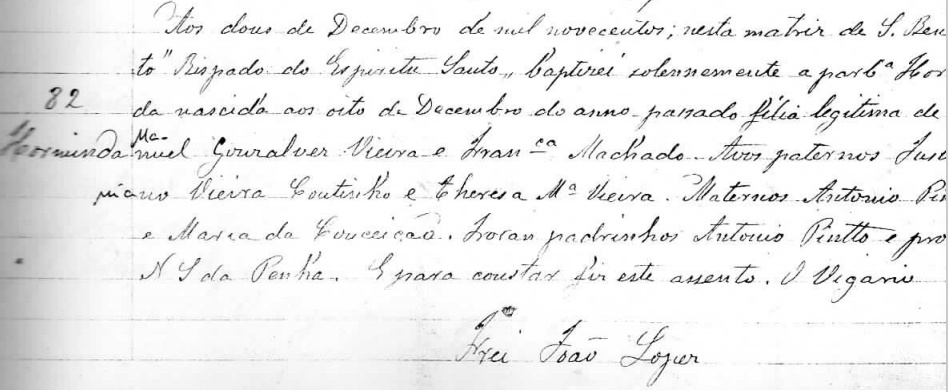 Aos dous de Decembro de mil novecentos; nesta matriz de S. Ben
to" Bispado do Espiritu Santo,, baptizei solennemente a parbª Hor
82
da nascida aos oito de Decembro do anno passado filia legitima de
Horminda
Ma-
nuel Gonzalvez Vieira e Franca Machado. Avos paternos
niano Vieira Coutinho e Theresa Mª Vieira. Maternos Antonio Pin
e Maria da Conceição. Foran padrinhos Antonio Pintto e pro
N S da Penha. E para constar fiz este assento. O Vigario
Frei João Lopez